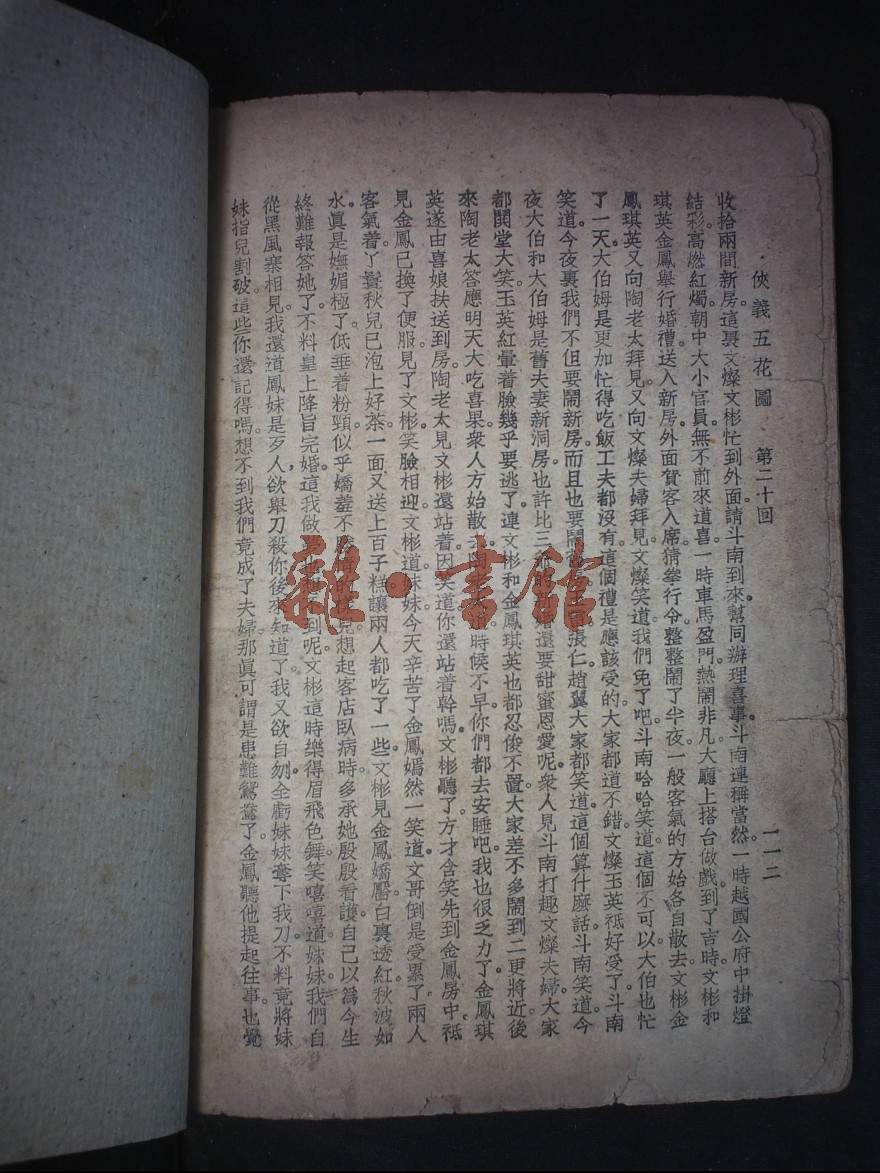 俠義五花圖 第二十回 一一二
收拾兩間新房。這裏文燦文彬忙到外面。請斗南到來。幫同辦理喜事。斗南連稱當然。一時越國公府中。掛燈
結彩。高燃紅燭。朝中大小官員。無不前來道喜。一時車馬盈門。熱鬧非凡。大廳上搭台做戲。到了吉時。文彬和
琪英金鳳舉行婚禮。送入新房。外面賀客入席。猜拳行令。整整鬧了半夜。一般客氣的方始各自散去。文彬金
鳳琪英又向陶老太拜見。又向文燦夫婦拜見。文燦笑道。我們免了吧。斗南哈哈笑道。這個不可以。大伯也忙
了一天。大伯姆是更加忙得吃飯工夫都沒有。這個禮是應該受的。大家都道不錯。文燦玉英祗好受了。斗南
笑道。今夜裏我們不但要鬧新房。而且也要鬧舊張仁趙翼大家都笑道。這個算什麼話。斗南笑道。今
夜大伯和大伯姆是舊夫妻新洞房。也許比三爺還要甜蜜恩愛呢。衆人見斗南打趣文燦夫婦。大家
都鬨堂大笑。玉英紅暈着臉。幾乎要逃了。連文彬和金鳳琪英也都忍俊不置。大家差不多鬧到二更將近。後
來陶老太答應明天大吃喜果。衆人方始散去。陶老時候不早。你們都去安睡吧。我也很乏力了。金鳳琪
英遂由喜娘扶送到房。陶老太見文彬還站着。因笑道。你還站着幹嗎。文彬聽了。方才含笑先到金鳳房中。祗
見金鳳已換了便服。見了文彬。笑臉相迎。文彬道。妹妹今天辛苦了。金鳳嫣然一笑道。文哥倒是受累了。兩人
客氣着。丫鬟秋兒已泡上好茶。一面又送上百子糕。讓兩人都吃了一些。文彬見金鳳嬌靨白裏透紅。秋波如
水。眞是嫵媚極了。低垂着粉頸。似乎嬌羞不勝情的樣兒。想起客店臥病時。多承她殷殷看護。自己以爲今生
終難報答她了。不料皇上降旨完婚。這我做夢也想不到呢。文彬這時樂得眉飛色舞。笑嘻嘻道。妹妹。我們自
從黑風寨相見。我還道鳳妹是歹人。欲舉刀殺你。後來知道了。我又欲自刎。全虧妹妹奪下我刀。不料竟將妹
妹指兒割破。這些你還記得嗎。想不到我們竟成了夫婦。那眞可謂是患難鴛鴦了。金鳳聽他提起往事。也覺
雜·書館